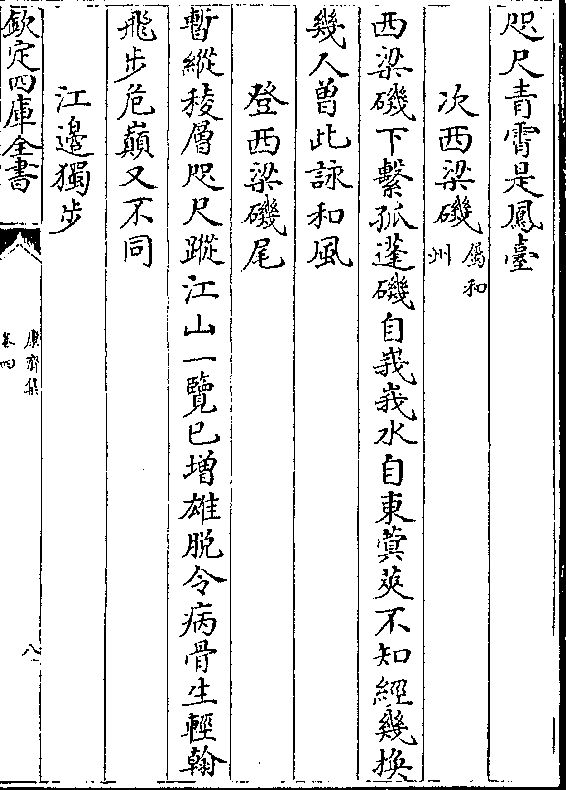 咫尺青霄是鳳臺
次西梁磯屬和州
西梁磯下繫孤蓬磯自峩峩水自東蓂莢不知經幾換
幾人曽此詠和風
登西梁磯尾
暫縱稜層咫尺蹤江山一覽已增雄脱令病骨生輕翰
飛步危巔又不同
江邊獨步
欽定四庫全書
康齋集
卷四
八